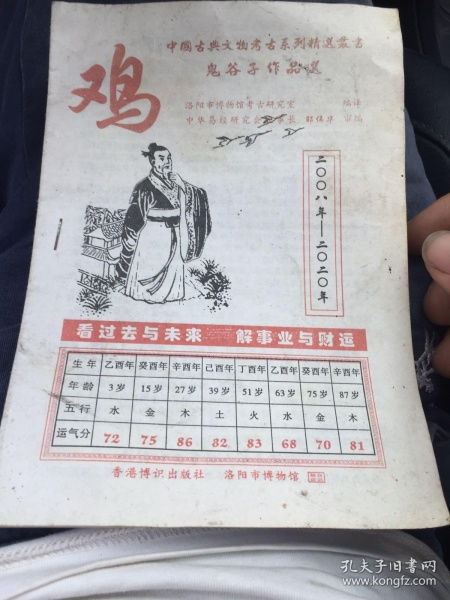 鸡
中國古典文物考古系列精選叢書
鬼谷子作品選
洛阳市博物馆考古研究室 编译
中华易经研究会 事长 邵伟华 审编
二〇〇八年—二〇二〇年
看过去与未来 解事业与财运
生年 乙酉年 癸酉年 辛酉年 己酉年 丁酉年 乙酉年 癸酉年 辛酉年
年龄 3岁 15岁 27岁 39岁 51岁 63岁 75岁 87岁
五行 水 金 木 土 火 水 金 木
运气分 72 75 86 82 83 68 70 81
香港博识出版社 洛阳市博物馆
孔夫子旧书网
www.kongfz.com